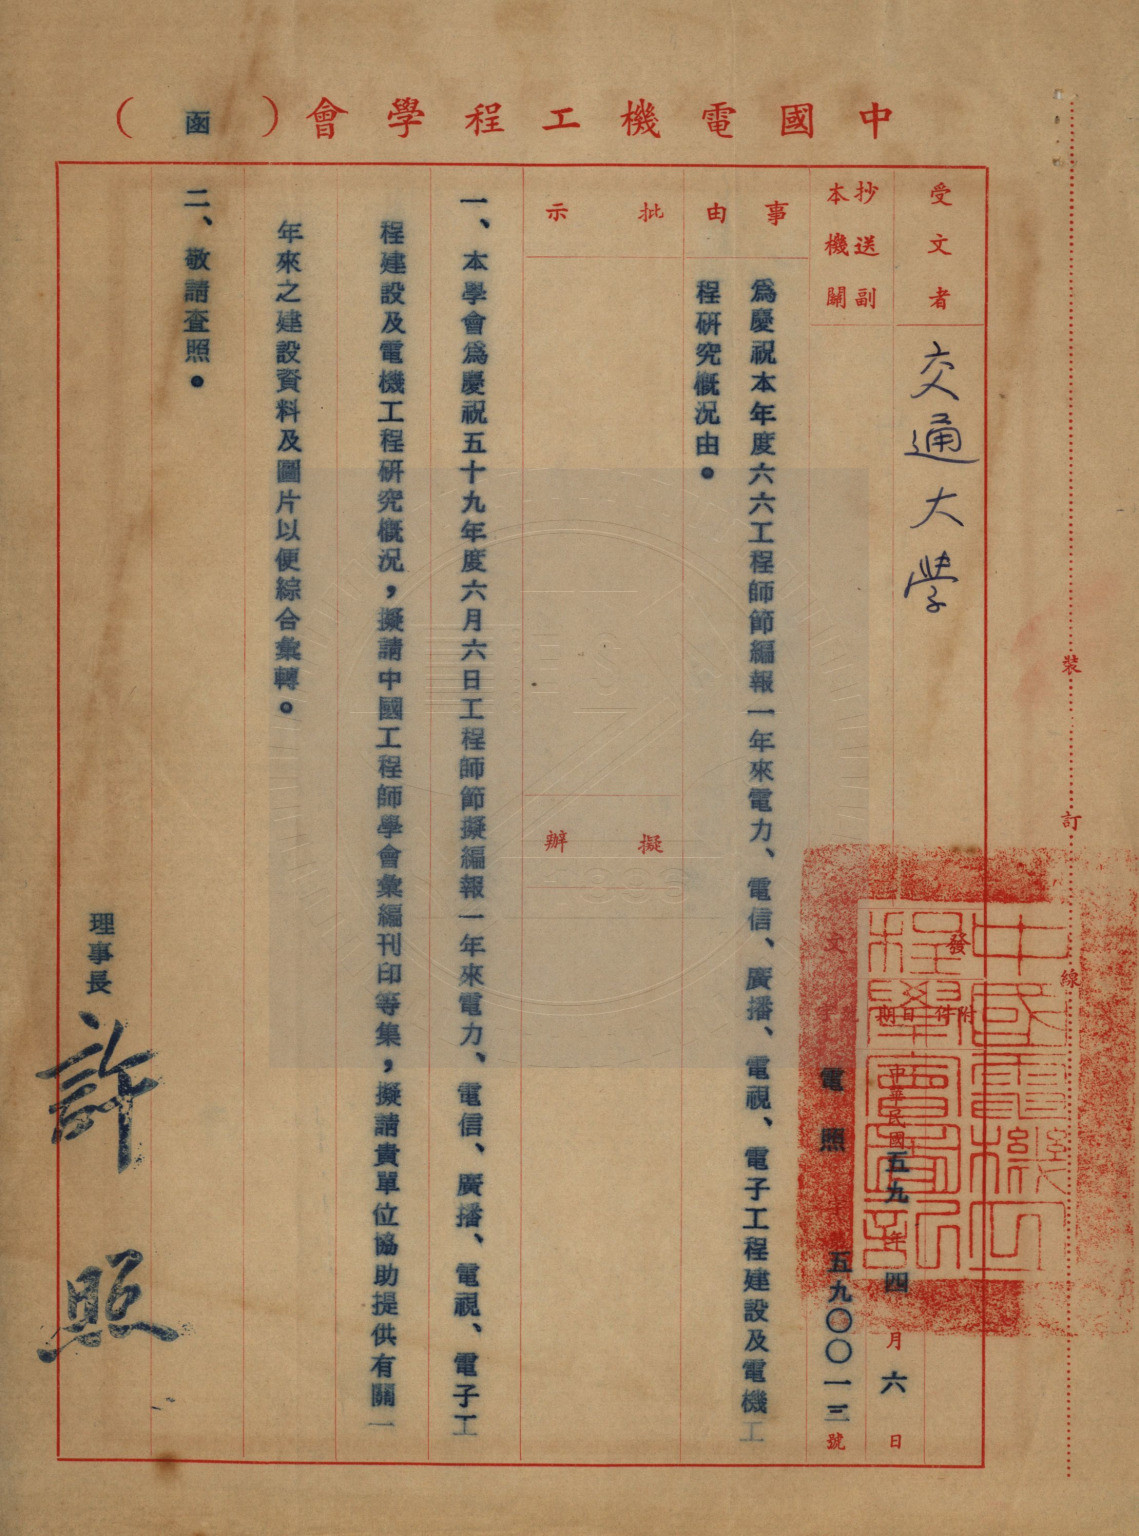 中國電機工程學會（函）
受文者
交通大學
抄送副
本機關
事由
為慶祝本年度六六工程師節編報一年來電力、電信、廣播、電視、電子工程建設及電機工
程研究概況由。
批示
擬辦
發
文
附件
日期
中華民國五九年四月六日
字
電照
五九〇〇一三號
一、本學會為慶祝五十九年度六月六日工程師節擬編報一年來電力、電信、廣播、電視、電子工
程建設及電機工程研究概況，擬請中國工程師學會彙編刊印等集，擬請貴單位協助提供有關一
年來之建設資料及圖片以便綜合彙轉。
二、敬請查照。
理事長
許照
裝訂線
中國電機工
程學會圖記